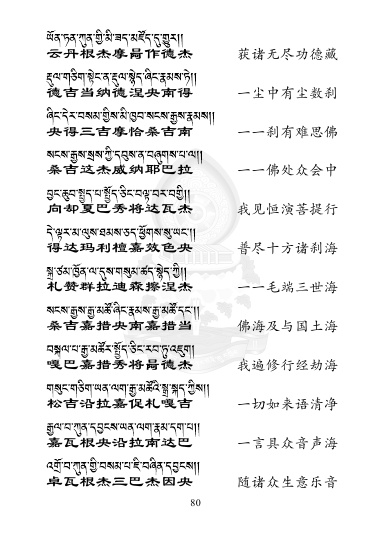 ཡོན་ཏན་ཀུན་གྱི་མི་ཟད་མཛོད་དུ་གྱུར།།
云丹根杰摩曷作德杰 获诸无尽功德藏
རྡུལ་གཅིག་སྟེང་ན་རྡུལ་སྙེད་ཞིང་རྣམས་ཏེ།།
德吉当纳德涅央南得 一尘中有尘数刹
ཞིང་དེར་བསམ་གྱིས་མི་ཁྱབ་སངས་རྒྱས་རྣམས།།
央得三吉摩恰桑吉南 一一刹有难思佛
སངས་རྒྱས་སྲས་ཀྱི་དབུས་ན་བཞུགས་པ་ལ།།
桑吉这杰威纳耶巴拉 一一佛处众会中
བྱང་ཆུབ་སྤྱད་པ་སྤྱོད་ཅིང་བལྟ་བར་བགྱི།།
向却夏巴秀将达瓦杰 我见恒演菩提行
དེ་ལྟར་མ་ལུས་ཐམས་ཅད་ཕྱོགས་སུ་ཡང་།།
得达玛利檀嘉效色央 普尽十方诸刹海
སྐྲ་ཙམ་ཁྱོན་ལ་དུས་གསུམ་ཚད་སྙེད་ཀྱི།།
札赞群拉迪森擦涅杰 一一毛端三世海
སངས་རྒྱས་རྒྱ་མཚོ་ཞིང་རྣམས་རྒྱ་མཚོ་དང་།།
桑吉嘉措央南嘉措当 佛海及与国土海
བསྐལ་པ་རྒྱ་མཚོར་སྤྱོད་ཅིང་རབ་ཏུ་འཇུག།
嘎巴嘉措秀将曷德杰 我遍修行经劫海
གསུང་གཅིག་ཡན་ལག་རྒྱ་མཚོའི་སྒྲ་སྐད་ཀྱིས།།
松吉沿拉嘉促札嘎吉 一切如来语清净
རྒྱལ་བ་ཀུན་དབྱངས་ཡན་ལག་རྣམ་དག་པ།།
嘉瓦根央沿拉南达巴 一言具众音声海
འགྲོ་བ་ཀུན་གྱི་བསམ་པ་ཇི་བཞིན་དབྱངས།།
卓瓦根杰三巴杰因央 随诸众生意乐音
80